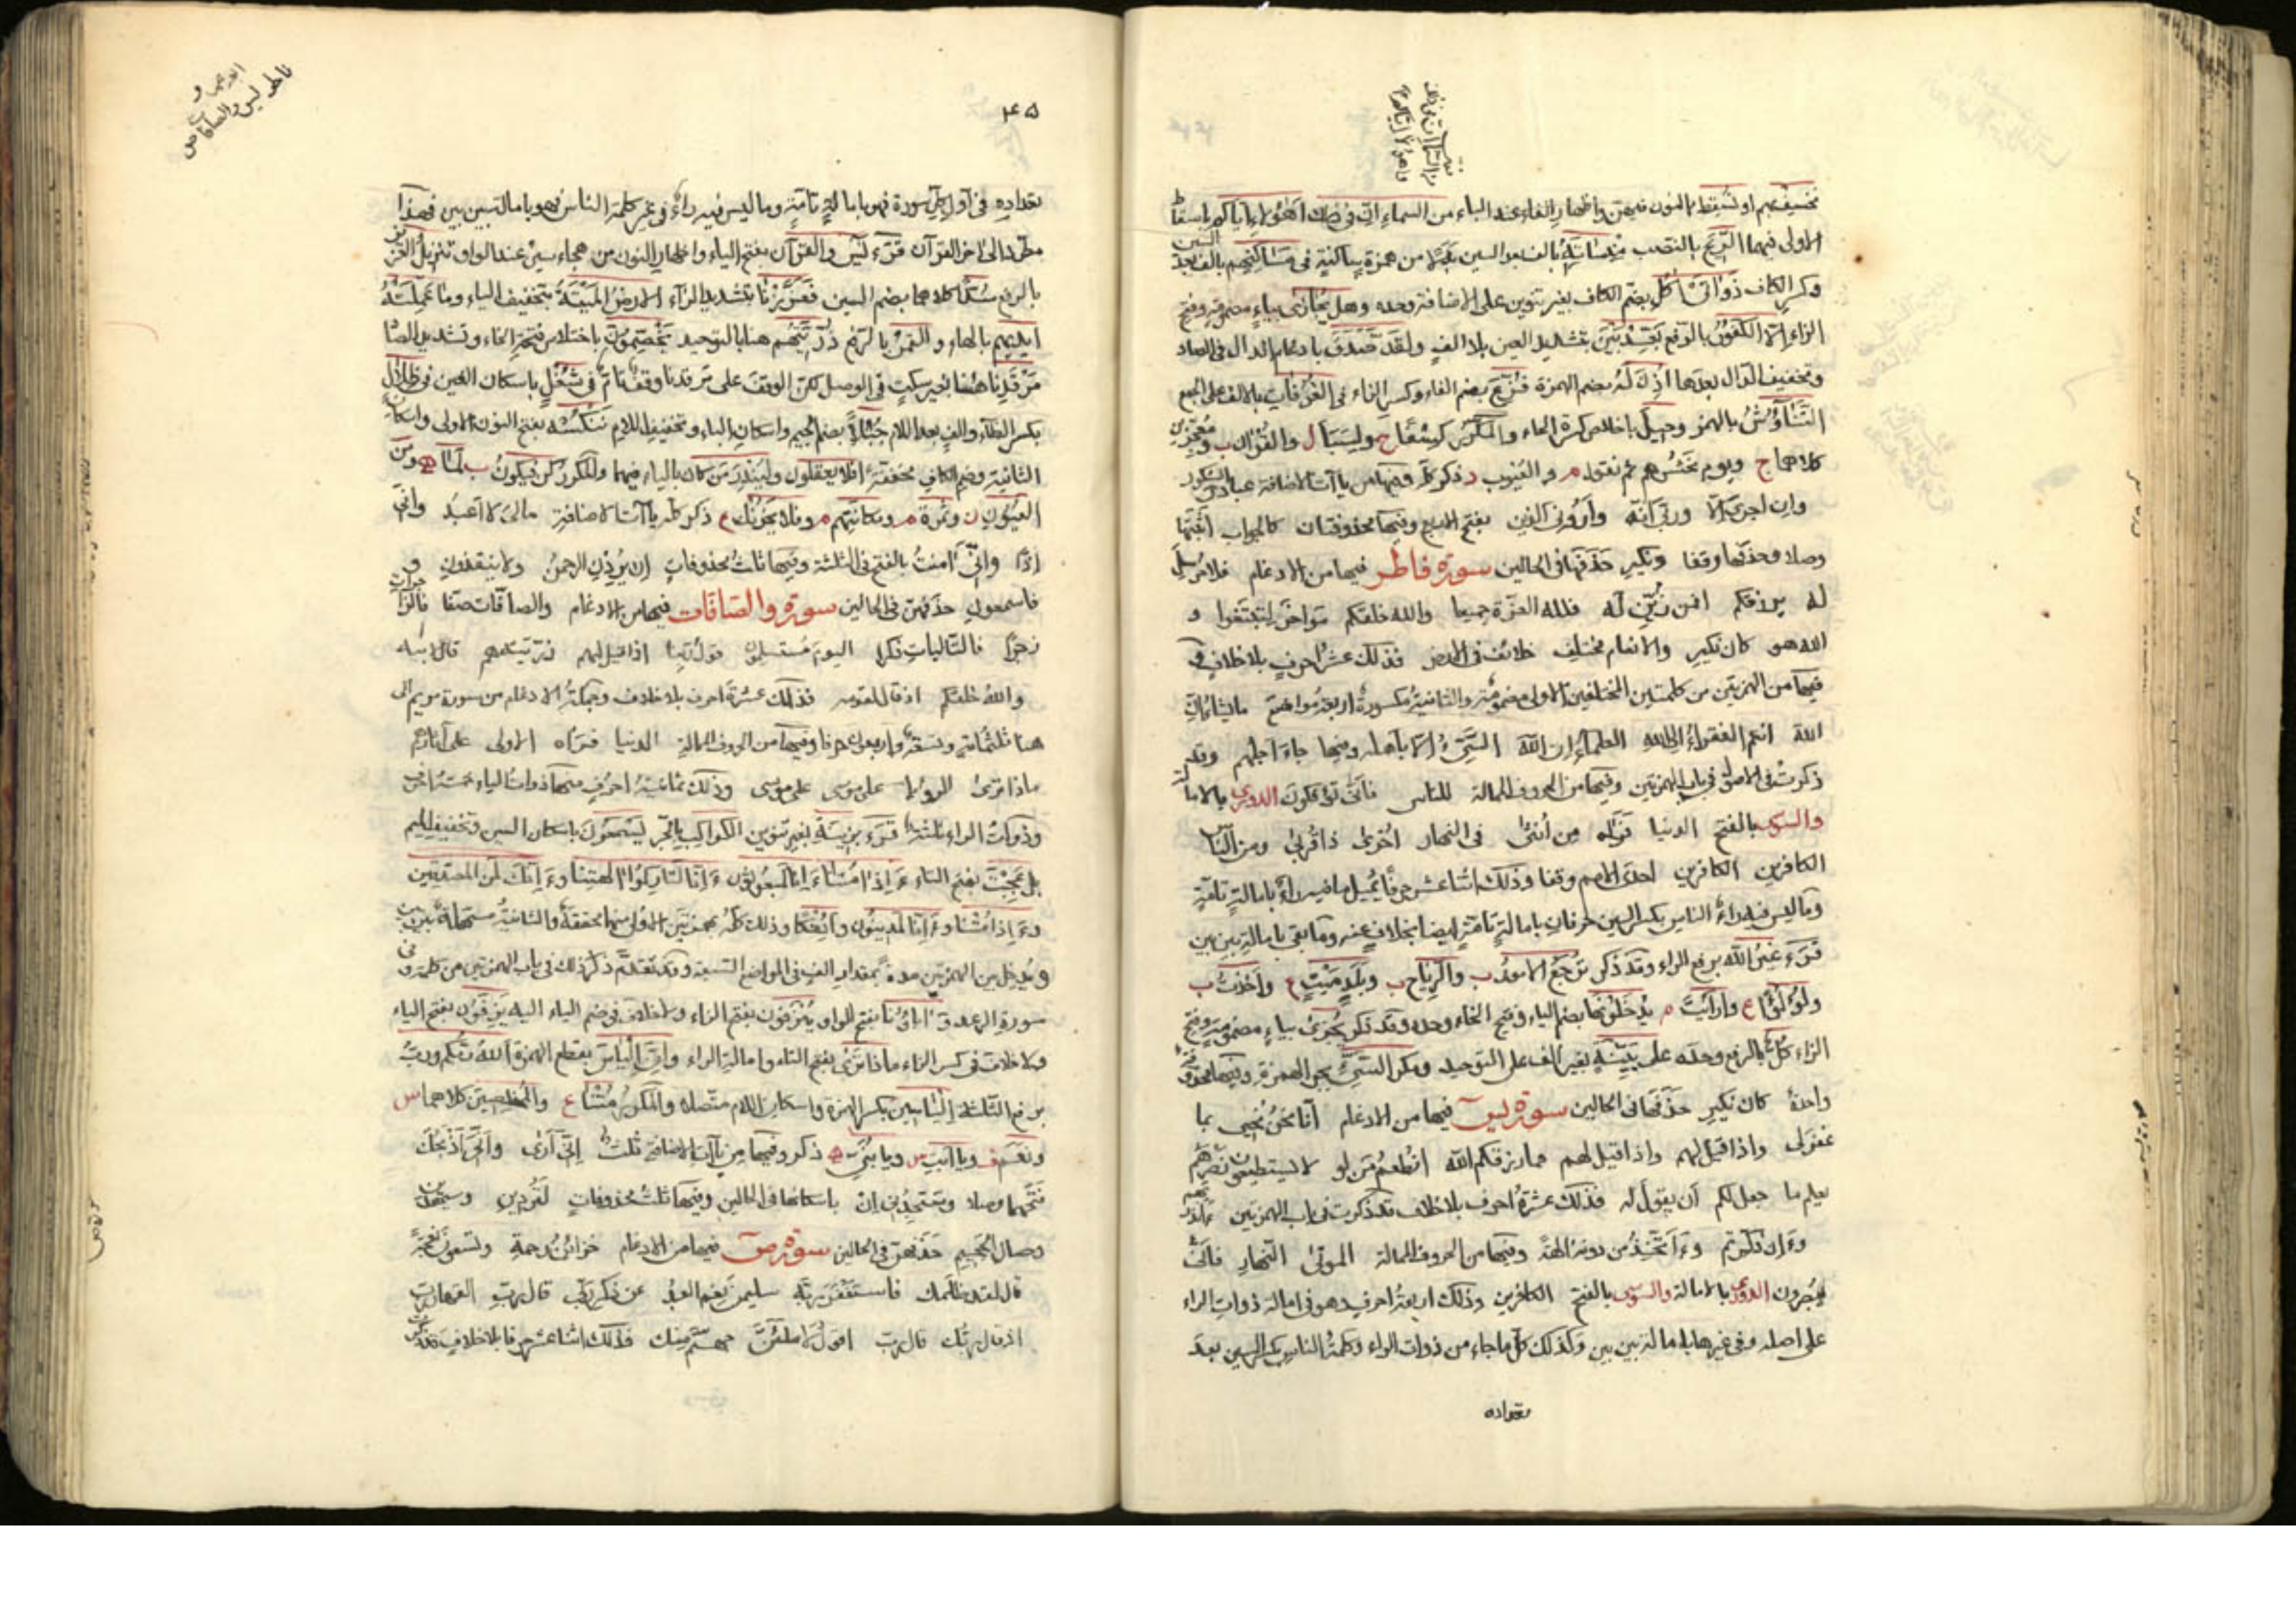 نخسف بهم او نسقط بالنون فيهن واظهار الفاء عند الباء من السماء ان في ذلك اهؤلاء اياكم باسقاط
الاولى فيهما الريح بالنصب منساته بالف بعد السين بدلا من همزة ساكنة في مساكنهم بالف بعد السين
وكسر الكاف ذواتى اكل بضم الكاف بغير تنوين على الاضافة وحده وهل يجازى بياء مضمومة وفتح
الزاء الا الكفور بالرفع بعد بين بتشديد العين بلا الف ولقد صدق بادغام الدال في الصاد
وتخفيف الدال بعدها اذن له بضم الهمزة فزع بضم الفاء وكسر الزاء في الغرفات بالالف على الجمع
التناؤش بالهمز وحيل باخلاص كسرة الحاء والمكرر كسفا ح ولسبا ل والقران ب ومعجزين
كلاهما ج ويوم نحشرهم ثم نقول م والغيوب د ذكر كله وفيها من ياآت الاضافة عبادي الشكور
وان اجري الا وربي انه واروني الذين بفتح الاربع وفيها محذوفتان كالجواب اثبتها
وصلا وحذفها وقفا ونكير حذفها في الحالين سورة فاطر فيها من الادغام فلا مرسل
له يرزقكم افمن زين له فلله العزة جميعا والله خلقكم مواخر لتبتغوا و
الله هو كان نكير والانعام مختلف خلائف في الارض فذلك عشرة احرف بلا خلاف و
فيها من الهمزتين من كلمتين المختلفين الاولى مضمومة والثانية مكسورة اربعة مواضع ما يشاء ان
الله انتم الفقراء الى الله العلماء ان الله السيئ الا باهله ومنها جاء اجلهم وقد
ذكرت في الاصول في باب الهمزتين وفيها من الحروف الممالة للناس فانى تؤفكون الدوري بالامالة
والسوسي بالفتح الدنيا فراه من أنثى في النهار اخرى ذا قربى ومن النار
الكافرين الكافرين احدى الامم وقفا وذلك اثنا عشر حرفا يميل ما فيه راء بامالة تامة
وما ليس فيه راء الناس بكسر السين حرفان بامالة تامة ايضا بخلاف عنه وما بقي بامالة بين بين
قرء غير الله برفع الراء وقد ذكر ترجع الامور ب والرياح ب وبلد ميت ع واخذت ب
ولؤلؤا ع وارأيت م يدخلونها بضم الياء وفتح الخاء وحده وقد ذكر يجزى بياء مضمومة وفتح
الزاء كل بالرفع وحده على بينة بغير الف على التوحيد ومكر السيئ بجر الهمزة وفيها محذوفة
واحدة كان نكير حذفها في الحالين سورة يس فيها من الادغام انا نحن نحيي بما
غفر لي واذا قيل لهم واذا قيل لهم مما رزقكم الله انطعم من لو لا يستطيعون نصرهم
يعلم ما جعل لكم أن يقول له فذلك عشرة احرف بلا خلاف قد ذكرت في باب الهمزتين
وءان ذكرتم وءاتخذ من دونه الهة وفيها من الحروف الممالة الموتى النهار فانى
يبصرون الدوري بالامالة والسوسي بالفتح الكافرين وذلك اربعة احرف وهو في امالة ذوات الراء
على اصله وفي غيرها بامالة بين بين وكذلك كل ما جاء من ذوات الراء وكلمة الناس بكسر السين بعد
تعداده
٢٤٥
تعداده في اوايل سورة فهو بامالة تامة وما ليس فيه راء في غير كلمة الناس فهو بامالة بين بين فهذا
مطرد الى اخر القرآن قرء يس والقرآن بفتح الياء واظهار النون من هجاء سين عند الواو تنزيل العزيز
بالرفع سدا كلاهما بضم السين فعززنا بتشديد الزاء الارض الميتة بتخفيف الياء وما عملته
ايديهم بالهاء والقمر بالرفع ذريتهم هنا بالتوحيد يخصمون باختلاس فتحة الخاء وتشديد الصاد
مرقدنا هذا بغير سكت في الوصل لكن الوقف على مرقدنا وقف تام في شغل باسكان الغين في ظلال
بكسر الظاء والف بعد اللام جبلا بضم الجيم واسكان الباء وتخفيف اللام ننكسه بفتح النون الاولى واسكان
الثانية وضم الكاف مخففة افلا يعقلون ولينذر من كان بالياء فيهما والمكرر كن فيكون ب لما ه ومن
العيون ن وثمره م ومكانتهم م وفلا يحزنك ع ذكر كله ياآت الاضافة مالى لا اعبد وانى
اذا وانى امنت بالفتح في الثلثة وفيها ثلث محذوفات ان يردن الرحمن ولا ينقذون و
فاسمعون حذفهن في الحالين سورة والصافات فيها من الادغام والصافات صفا فالزاجرات
زجرا فالتاليات ذكرا اليوم مستسلمون قول ربنا اذا قيل لهم ذريته هم قال لابيه
والله خلقكم اذ قال لقومه فذلك عشرة احرف بلا خلاف وجملة الادغام من سورة مريم الى
هنا ثلثمائة وتسعة واربعون حرفا وفيها من الحروف الممالة الدنيا فراه الاولى على آثارهم
ماذا ترى الرويا على موسى على موسى وذلك ثمانية احرف منها ذوات الياء خمسة احرف
وذوات الراء ثلثة قرء بزينة بغير تنوين الكواكب بالجر ليسمعون باسكان السين وتخفيف الميم
بل عجبت بفتح التاء ءاذا متنا ءانا لمبعوثون ءانا لتاركوا الهتنا وءانك لمن المصدقين
وءاذا متنا وءانا لمدينون وائفكا وذلك كله بهمزتين الاولى منهما محققة والثانية مسهلة بين بين
ويدخل بين الهمزتين مدة بمقدار الف في المواضع التسعة وقد تقدم ذكر ذلك في باب الهمزتين من كلمة وفي
سورة الرعد اواباؤنا بفتح الواو ينزفون بفتح الزاء ولا خلاف في ضم الياء اليه يزفون بفتح الياء
ولا خلاف في كسر الزاء ماذا ترى بفتح التاء وامالة الراء وان الياس بقطع الهمزة الله ربكم ورب
برفع الثلثة الياسين بكسر الهمزة واسكان اللام متصلة والمكرر متنا ع والمخلصين كلاهما س
ونعم ف ويا ابت س ويا بني ه ذكر وفيها من ياآت الاضافة ثلث انى ارى وانى اذبحك
فتحهما وصلا وستجدنى ان باسكانها في الحالين وفيها ثلث محذوفات لتردين وسيهدين
وصال الجحيم حذفهن في الحالين سورة ص فيها من الادغام خزائن رحمة وتسعون نعجة
قال لقد ظلمك فاستغفر ربه سليمن نعم العبد عن ذكر ربي قال رب القهار رب
اذ قال ربك قال رب اقول لاملئن جهنم منك فذلك اثنا عشر حرفا بلا خلاف